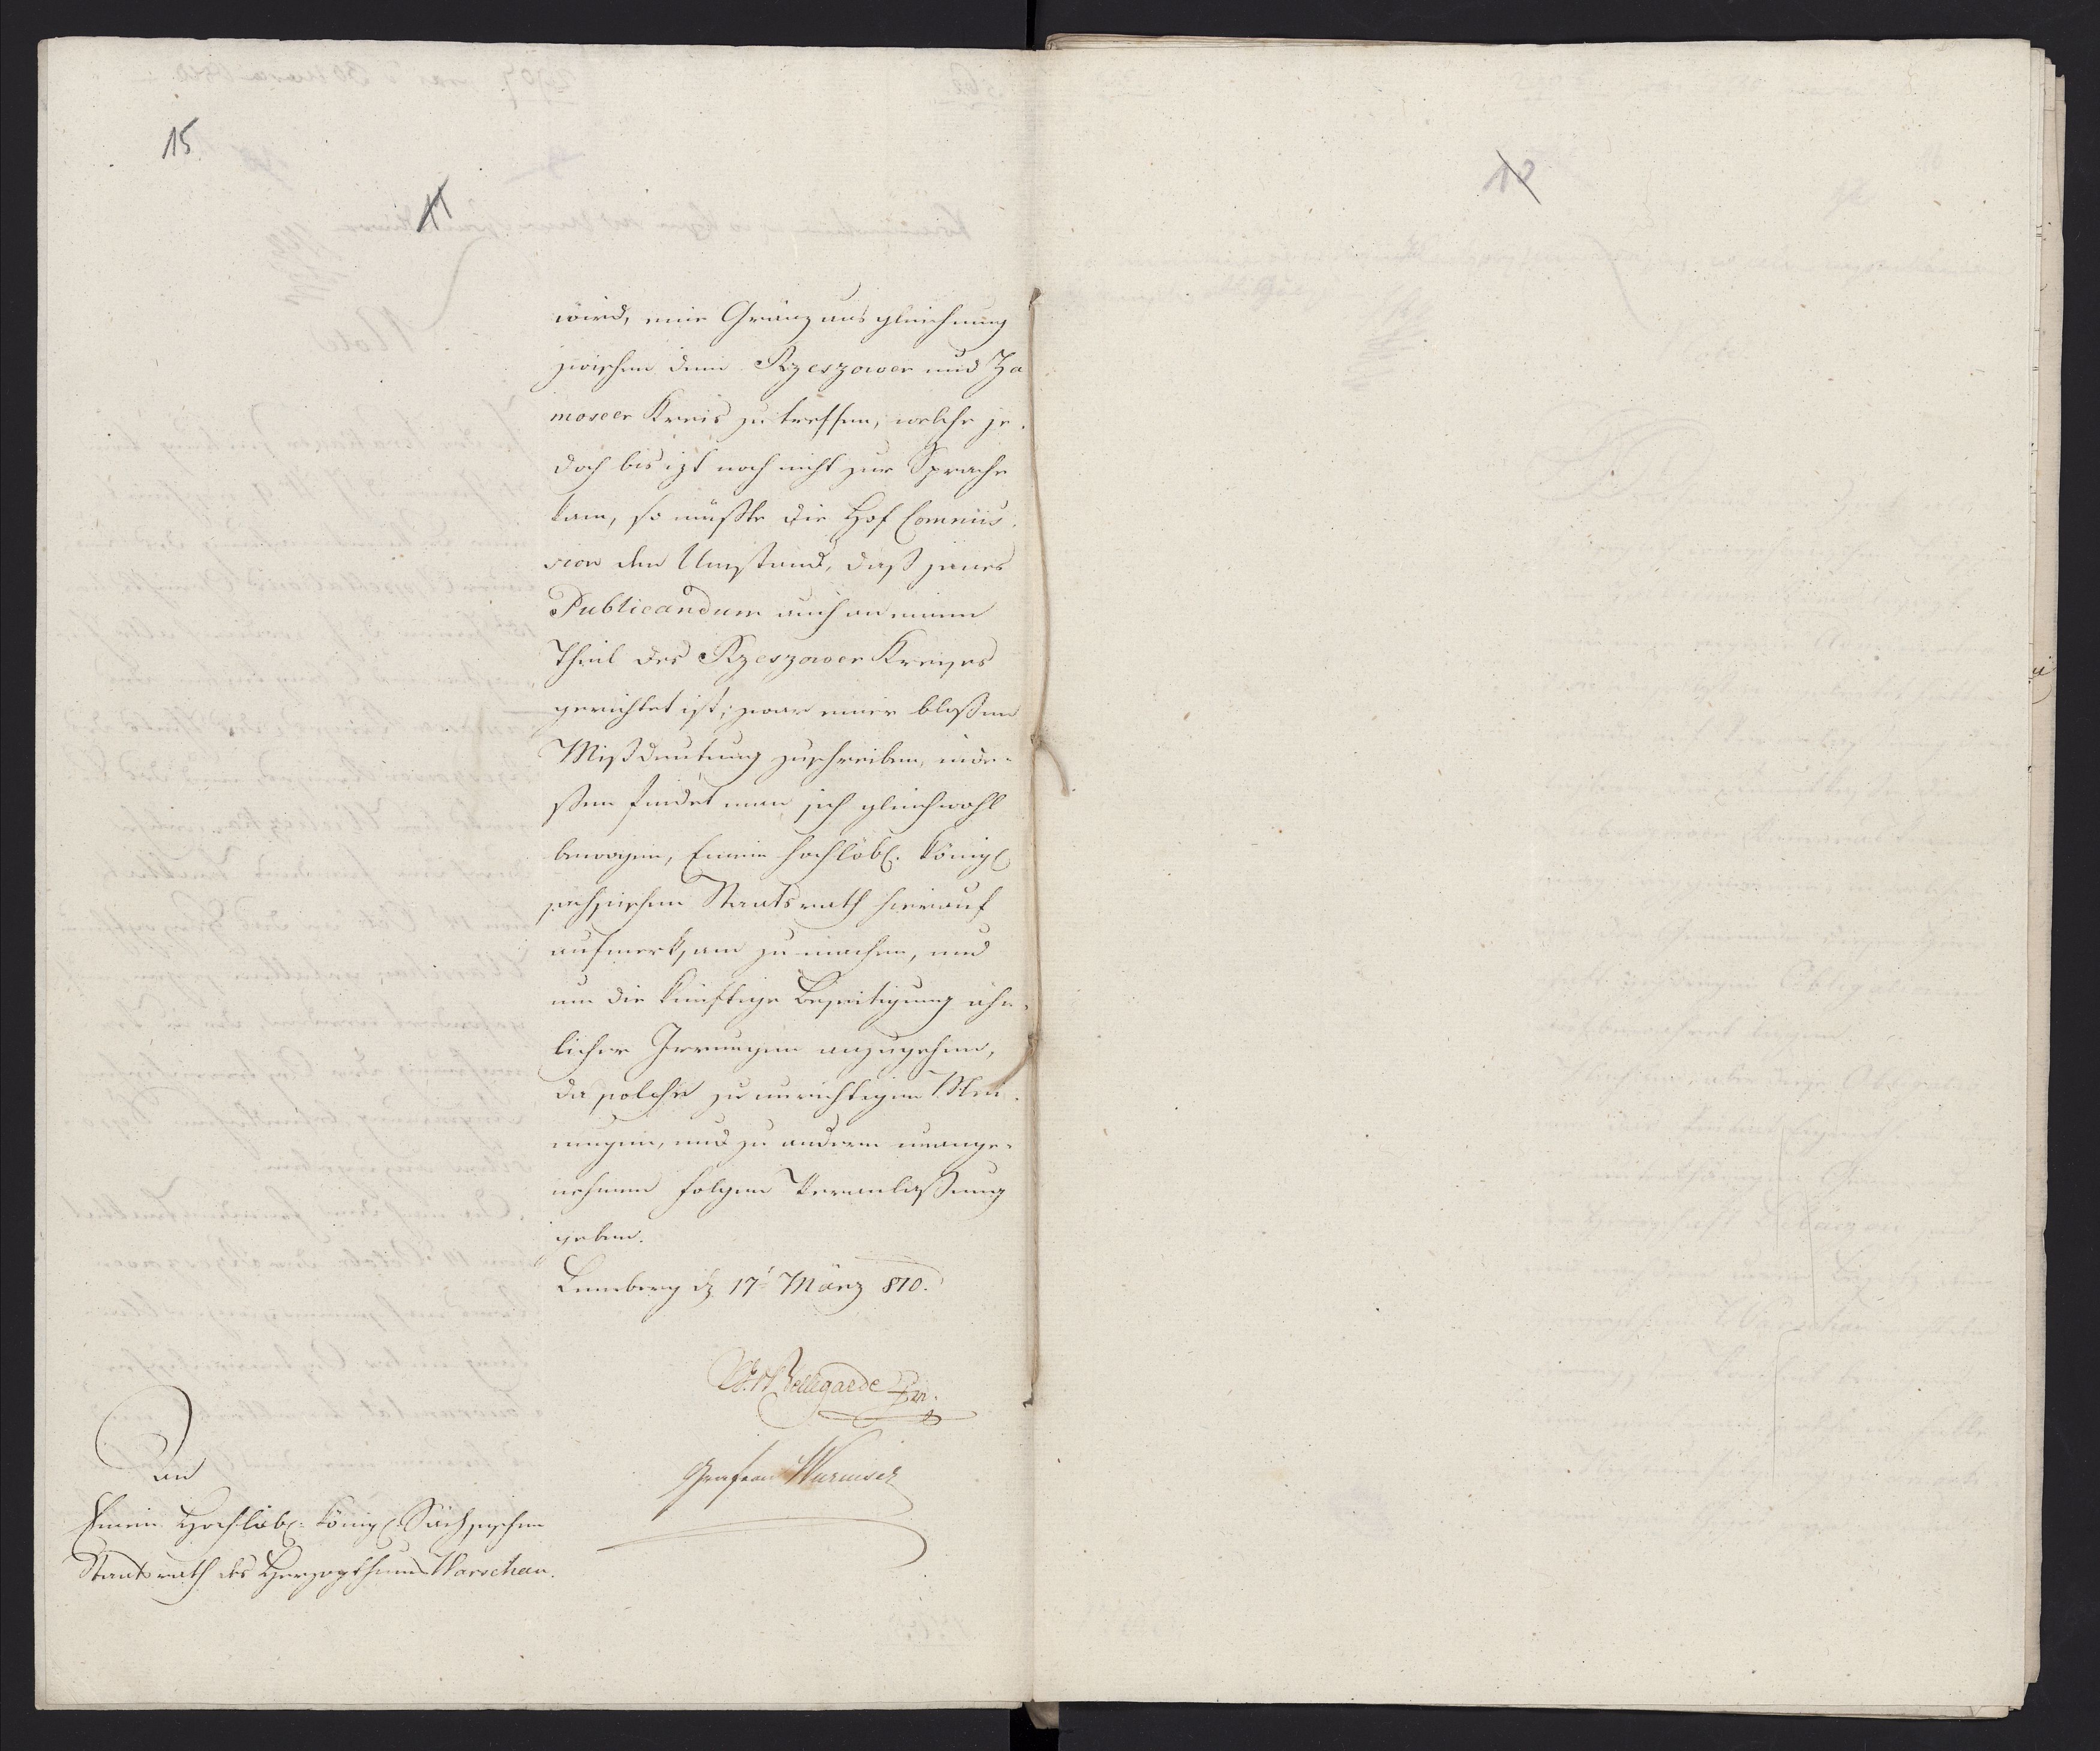 15
11
wird, eine Gränzausgleichung
zwischen dem Rzeszower und Za
moscer Kreis zu treffen, welche je-
doch bis izt noch nicht zur Sprache
kam, so müßte die Hof Commis-
sion den Umstand, daß jenes
Publicandum auch an einen
Theil des Rzeszower Kreises
gerichtet ist, zwar einer bloßen
Mißdeutung zuschreiben, inde-
ßen findet man sich gleichwohl
bewogen, Einen hochlöbl. königl
sächsischen Staatsrath hierauf
aufmerksam zu machen, und
um die künftige Beseitigung ähn-
licher Irrungen anzugehen,
da solche zu unrichtigen Mei-
nungen, und zu andern unange-
nehmen Folgen Veranlaßung
geben.
Lemberg d 17 März 810.
Bellegarde
Graf von Wurmser
An
Einen Hochlöbl. königl Sächsischen
Staatsrath des Herzogthums Warschau.
12